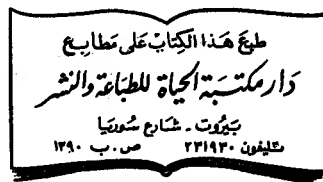 طبع هَذا الكِتابْ عَلى مَطابع
دَار مكتَبة الحيَاة للطبَاعَة والنشر
بَيروت - شارع سُوريَا
تليفون ٢٣١٩٣٠ ص.ب ١٣٩٠